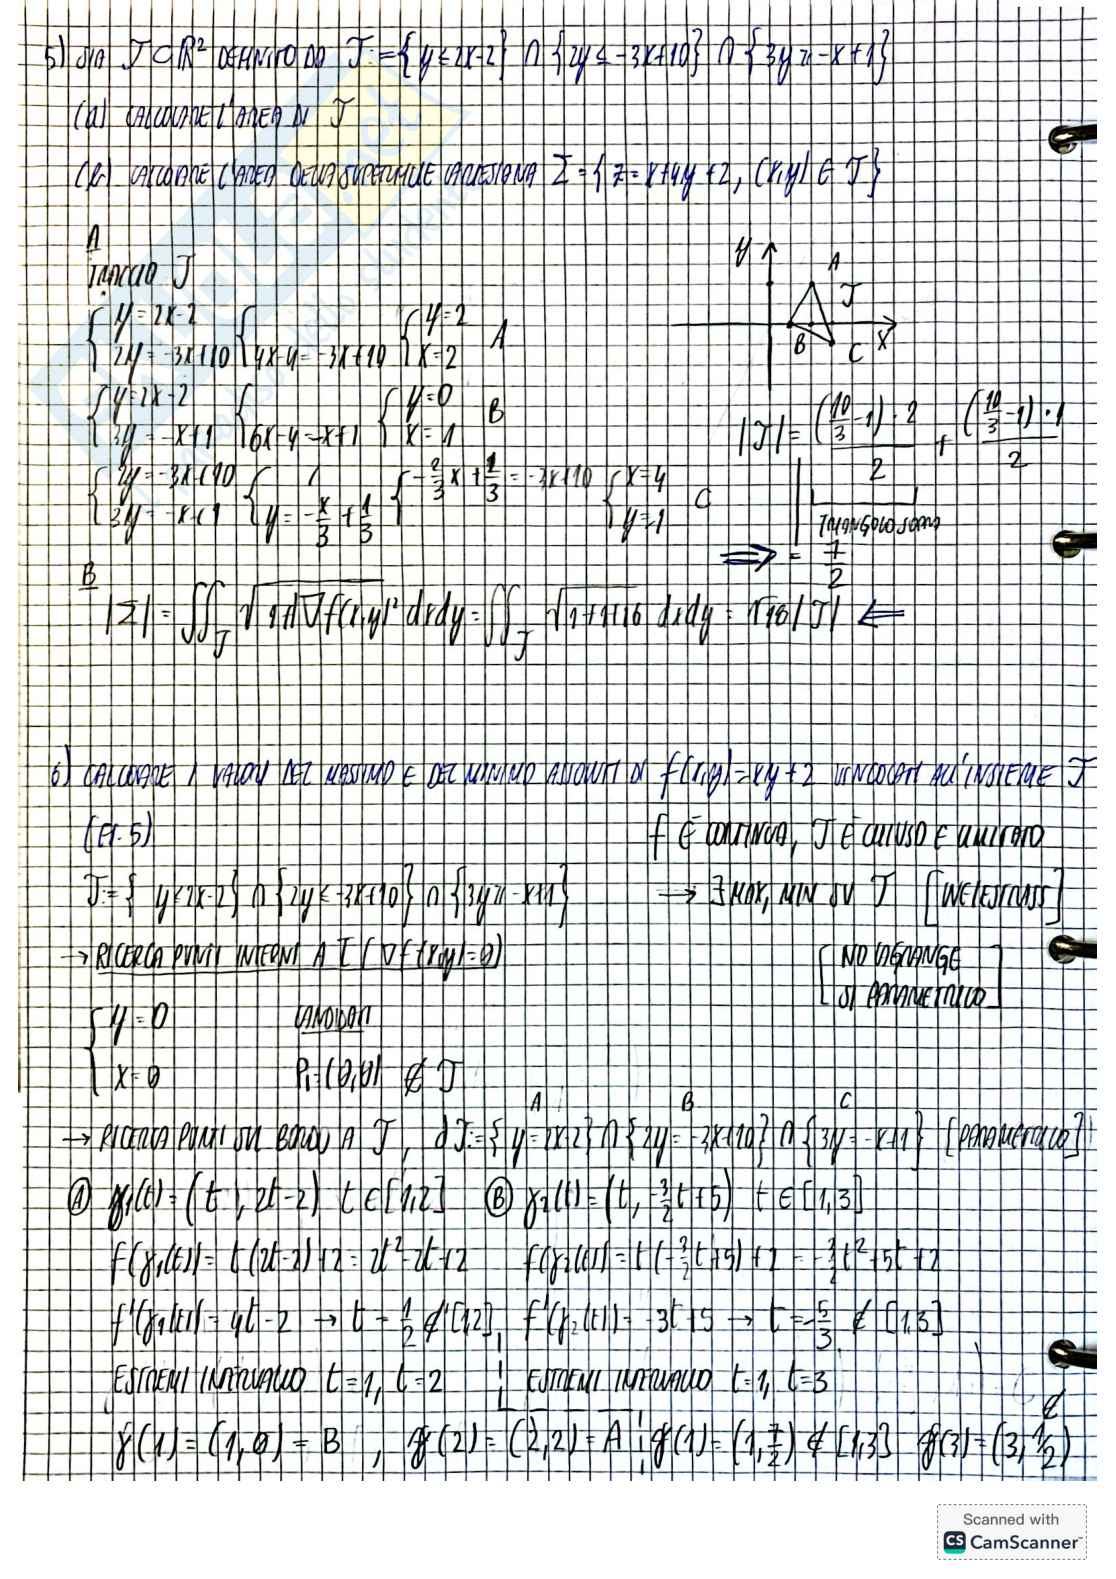 5) SIA J⊂ℝ² DEFINITO DA J:={y≤2x-2} ∩ {2y≤-3x+10} ∩ {3y≥-x+1}
(a) CALCOLARE L'AREA DI J
(b) CALCOLARE L'AREA DELLA SUPERFICIE CARTESIANA Σ={z=x+4y+2, (x,y)∈J}
A
TRACCIO J
{y=2x-2 {4x-4=-3x+10 {y=2 A
{2y=-3x+10 {x=2
{y=2x-2 {6x-4=-x+1 {y=0 B
{3y=-x+1 {x=1
{2y=-3x+10 { / {-2/3x+1/3=-3x+10 {x=4 C
{3y=-x+1 {y=-x/3+1/3 {y=-1
y A J B C x
|J|= (10/3-1)·2/2 + (10/3-1)·1/2
TRIANGOLO SOPRA
⇒ = 7/2
B
|Σ|=∬_J √1+|∇f(x,y)|² dxdy=∬_J √1+1+16 dxdy= √18|J| ⇐
6) CALCOLARE I VALORI DEL MASSIMO E DEL MINIMO ASSOLUTI DI f(x,y)=xy+2 VINCOLATI ALL'INSIEME J
(ES. 5) f È CONTINUA, J È CHIUSO E LIMITATO
J:={ y≤2x-2} ∩ {2y≤-3x+10} ∩ {3y≥-x+1} → ∃ MAX, MIN SU J [WEIESTRASS]
→ RICERCA PUNTI INTERNI A J (∇f(x,y)=0) [NO LAGRANGE
SI PARAMETRICO]
{y=0 CANDIDATI
{x=0 P₁=(0,0) ∉ J
A B C
→ RICERCA PUNTI SUL BORDO A J, ∂J:={y=2x-2} ∩ {2y=-3x+10} ∩ {3y=-x+1} [PARAMETRICO]
Ⓐ γ₁(t)=(t, 2t-2) t∈[1,2] Ⓑ γ₂(t)=(t, -3/2t+5) t∈[1,3]
f(γ₁(t))= t(2t-2)+2=2t²-2t+2 f(γ₂(t))=t(-3/2t+5)+2=-3/2t²+5t+2
f'(γ₁(t))=4t-2 → t=1/2 ∉[1,2] f'(γ₂(t))=-3t+5 → t=5/3 ∉ [1,3]
ESTREMI INTERVALLO t=1, t=2 ESTREMI INTERVALLO t=1, t=3
γ(1)=(1,0)=B, γ(2)=(2,2)=A γ(1)=(1,7/2)∉[1,3] γ(3)=(3,1/2) ∉
Scanned with
CS CamScanner™